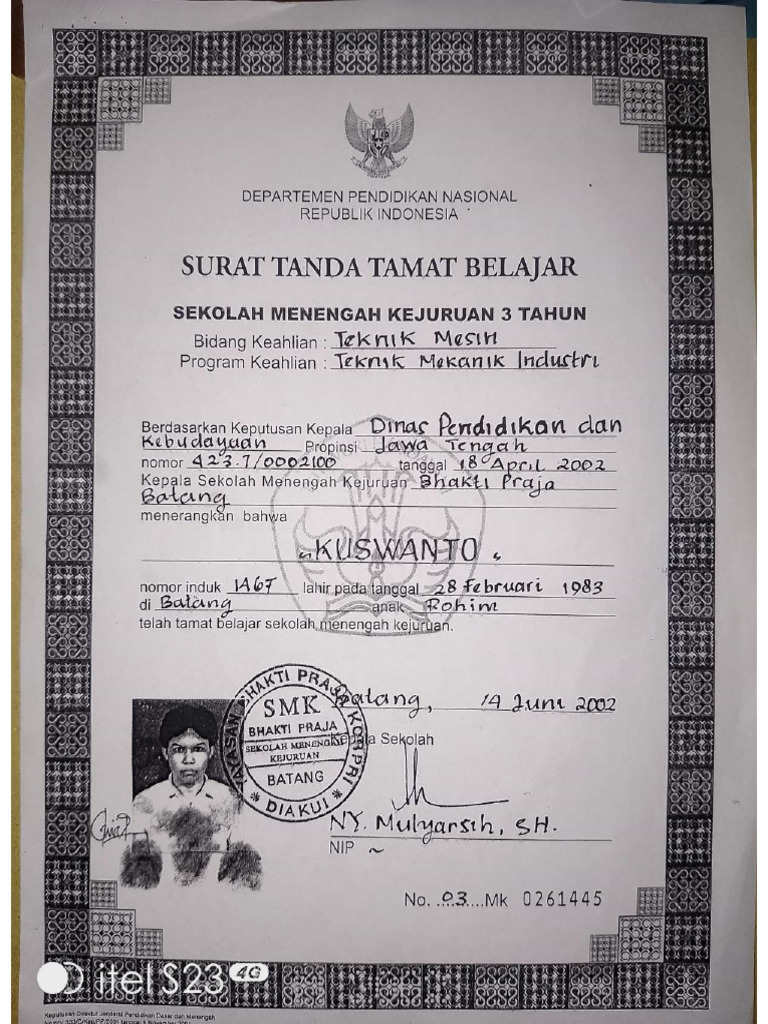 DEPARTEMEN PENDIDIKAN NASIONAL
REPUBLIK INDONESIA
SURAT TANDA TAMAT BELAJAR
SEKOLAH MENENGAH KEJURUAN 3 TAHUN
Bidang Keahlian : Teknik Mesin
Program Keahlian : Teknik Mekanik Industri
Berdasarkan Keputusan Kepala Dinas Pendidikan dan
Kebudayaan Propinsi Jawa Tengah
nomor 423.7/0002100 tanggal 18 April 2002
Kepala Sekolah Menengah Kejuruan Bhakti Praja
Batang
menerangkan bahwa
"KUSWANTO"
nomor induk 1467 lahir pada tanggal 28 Februari 1983
di Batang anak Rohim
telah tamat belajar sekolah menengah kejuruan.
Batang, 14 Juni 2002
Kepala Sekolah
YAYASAN BHAKTI PRAJA KORPRI
SMK
BHAKTI PRAJA
SEKOLAH MENENGAH
KEJURUAN
BATANG
* DIAKUI *
NY. Mulyarsih, SH.
NIP ~
No. ..03....Mk 0261445
itel S23 4G
Keputusan Direktur Jenderal Pendidikan Dasar dan Menengah